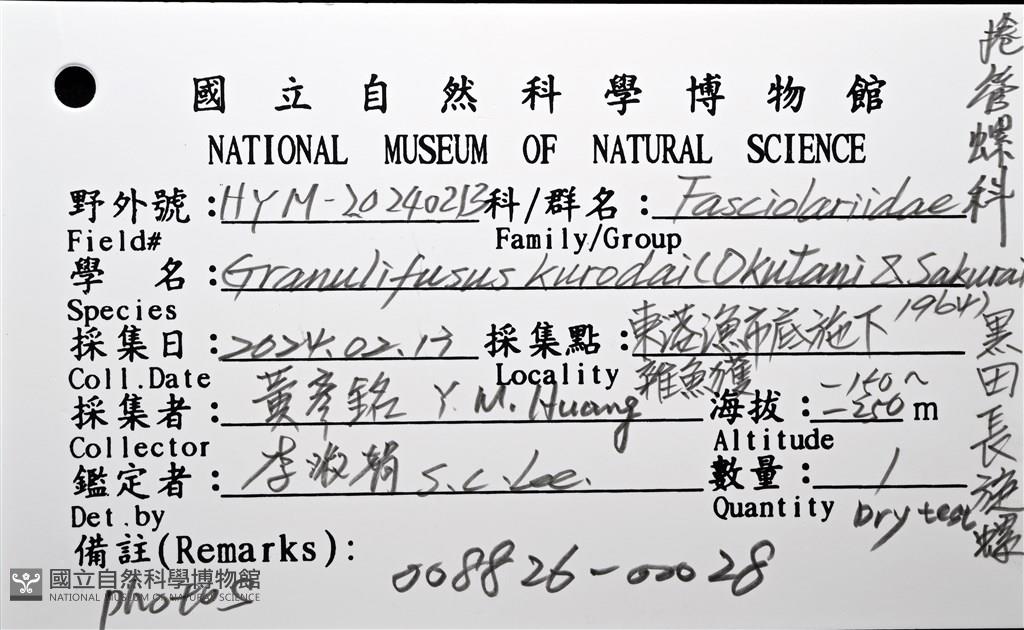 國立自然科學博物館
NATIONAL MUSEUM OF NATURAL SCIENCE
野外號：HYM-20240213 科/群名：Fasciolariidae
Field# Family/Group
學名：Granulifusus kurodai (Okutani & Sakurai 1964)
Species
採集日：2024.02.13 採集點：東港漁市底拖下雜魚獲
Coll.Date Locality
採集者：黃彥銘 Y. M. Huang 海拔：-150~-250 m
Collector Altitude
鑑定者：李淑 S.C. Lee. 數量：1
Det.by Quantity Dry
備註(Remarks)：
008826-00028
photos
捲管螺科
黑田長旋螺
國立自然科學博物館
NATIONAL MUSEUM OF NATURAL SCIENCE